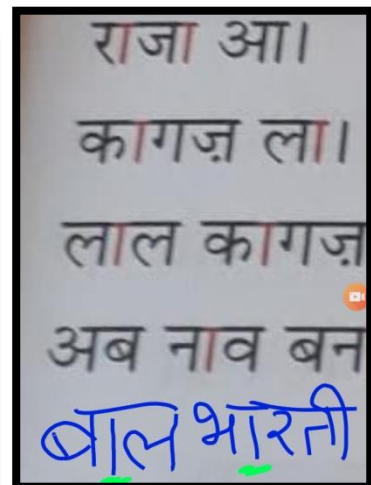 राजा आ।
कागज़ ला।
लाल कागज़
अब नाव बन
बाल भारती